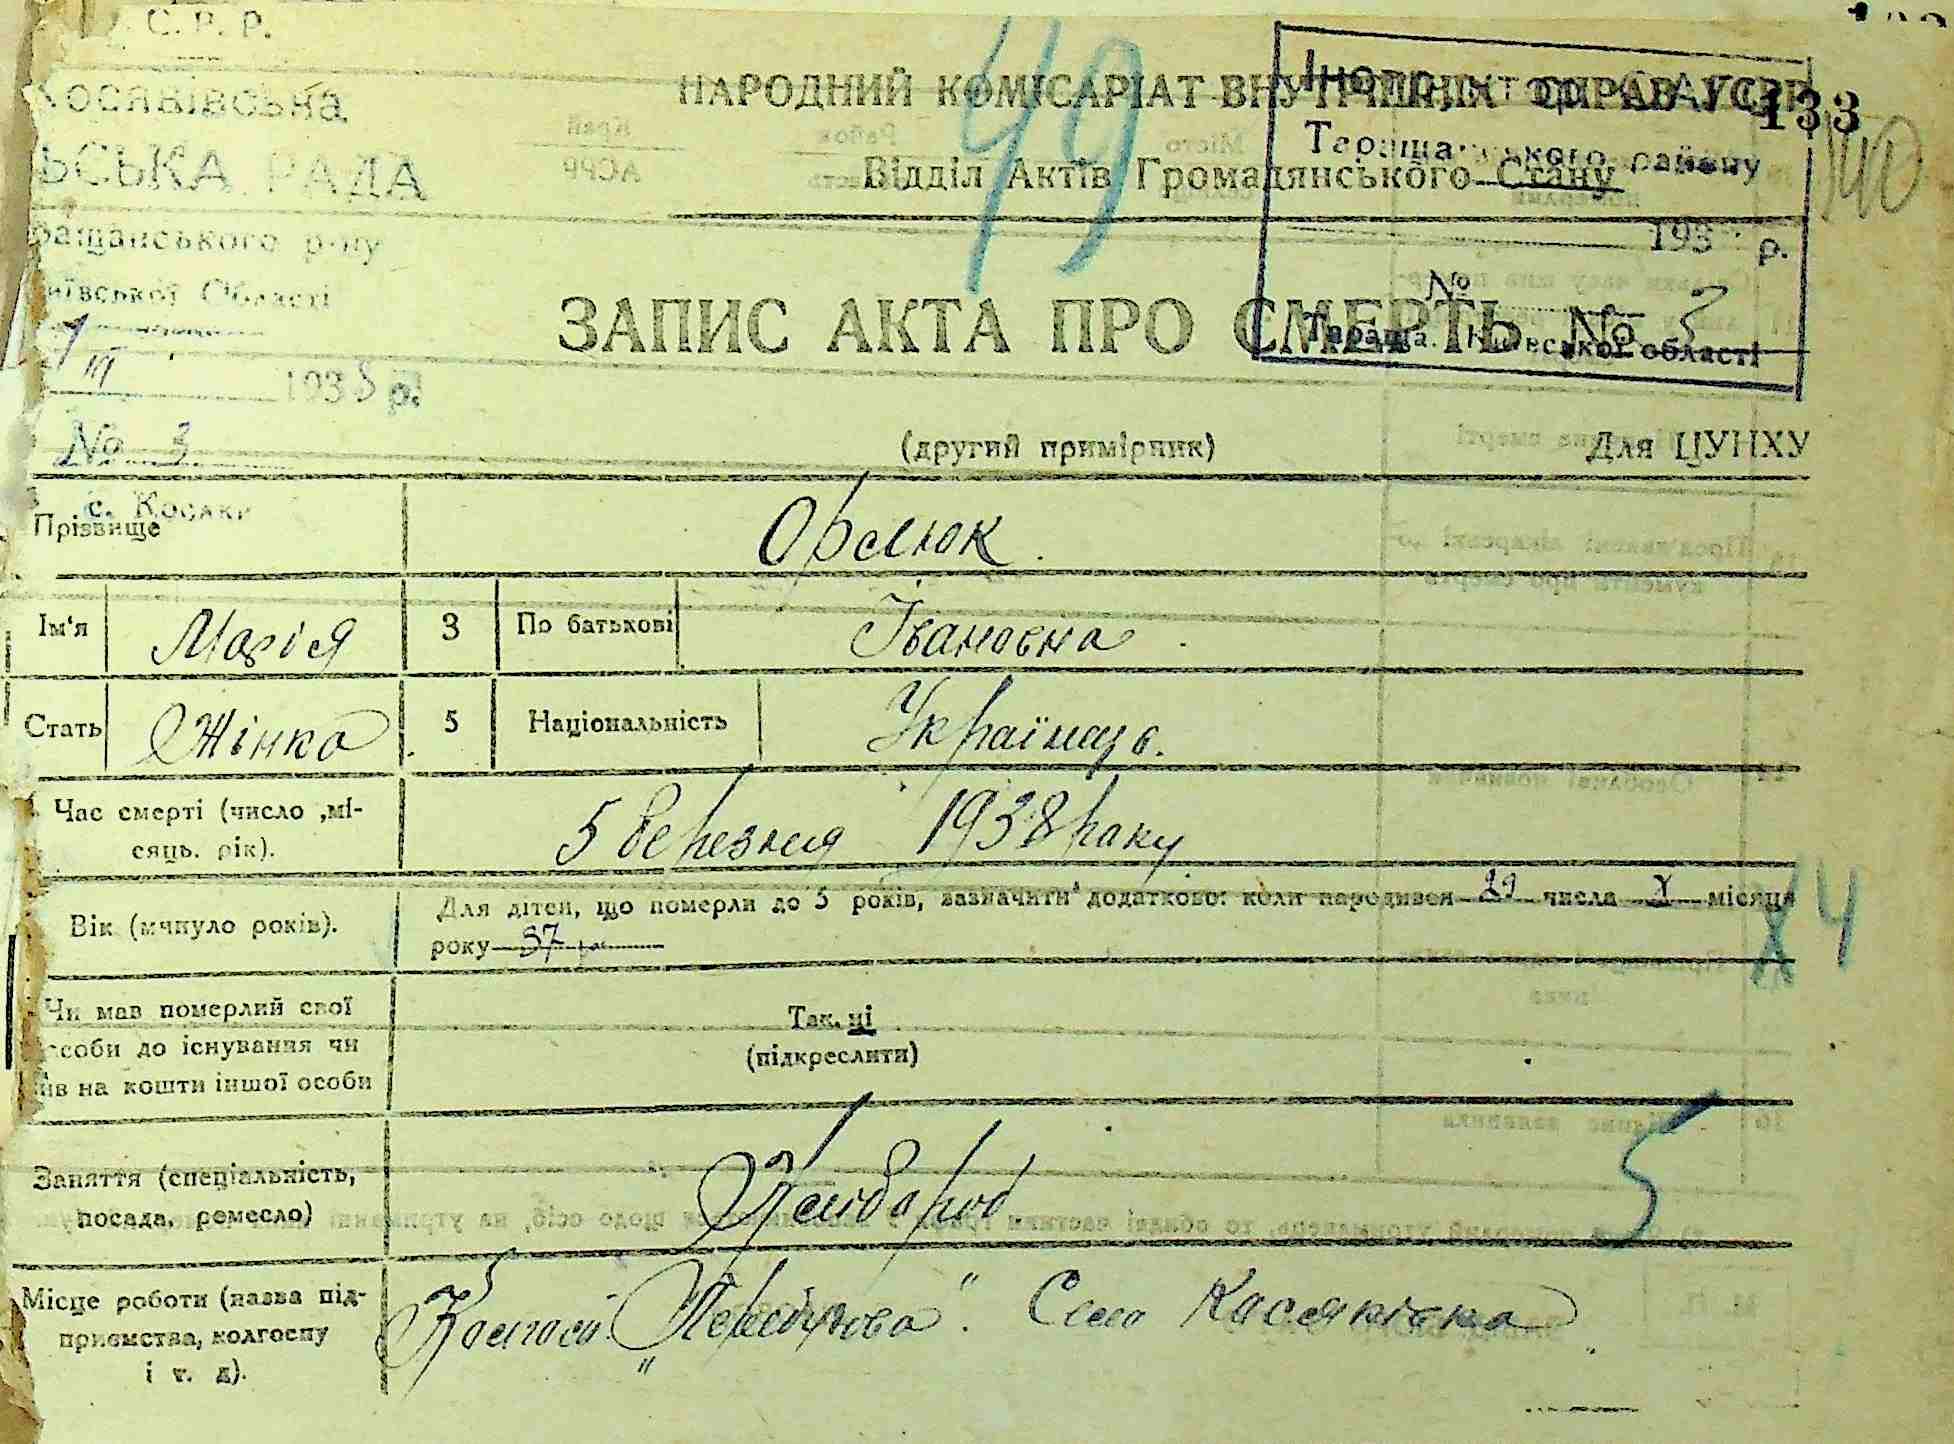 С. Р. Р.
Косяківська
ЬСЬКА РАДА
ращанського р-ну
иївської Області
7
III 1938 р.
№ 3
с. Косяки
49
НАРОДНИЙ КОМІСАРІАТ ВНУТРІШНІХ СПРАВ УСРР
133
140
Відділ Актів Громадянського Стану
Таращанського району
193 р.
№
Тараща, Київської області
ЗАПИС АКТА ПРО СМЕРТЬ № 3
(другий примірник) Для ЦУНХУ
Прізвище Орлюк
Ім'я Марія 3 По батькові Івановна
Стать Жінка 5 Національність Українць.
Час смерті (число ,мі-
сяць. рік). 5 березня 1938 року
Вік (минуло років). Для дітей, що померли до 5 років, зазначити додатково: коли народився 29 числа X місяця
року 37 р
X 4
Чи мав померлий свої
соби до існування чи
ив на кошти іншої особи
Так, ні
(підкреслити)
Заняття (спеціальність,
посада, ремесло) Хлібороб
5
Місце роботи (назва під-
приємства, колгоспу
і т. д).
Колгосп „Перебудова". Село Косяківка